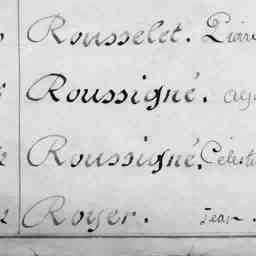 Rousselet. Pierre
Roussigné.
Roussigné. Célestin
Royer. Jean.